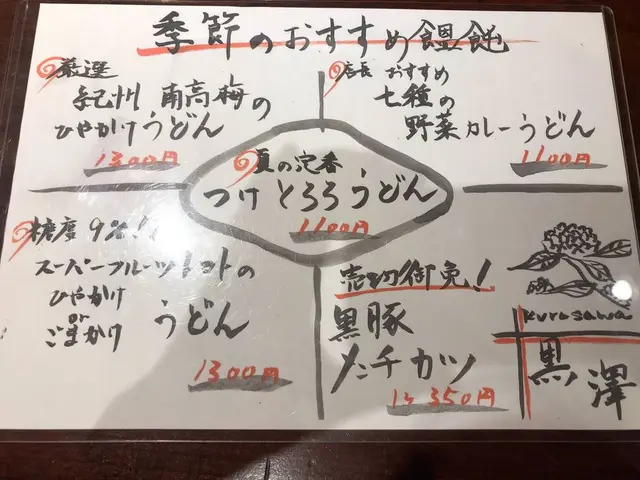 季節のおすすめ饂飩
厳選
紀州 南高梅の
ひやかけうどん
1300円
店長 おすすめ
七種の
野菜カレーうどん
1100円
夏の定番
つけとろろうどん
1100円
糖度9%!!
スーパーフルーツトマトの
ひやかけ
or
ごまかけ
うどん
1300円
売切御免!
黒豚
メンチカツ
1ヶ350円
kurosawa
黒澤